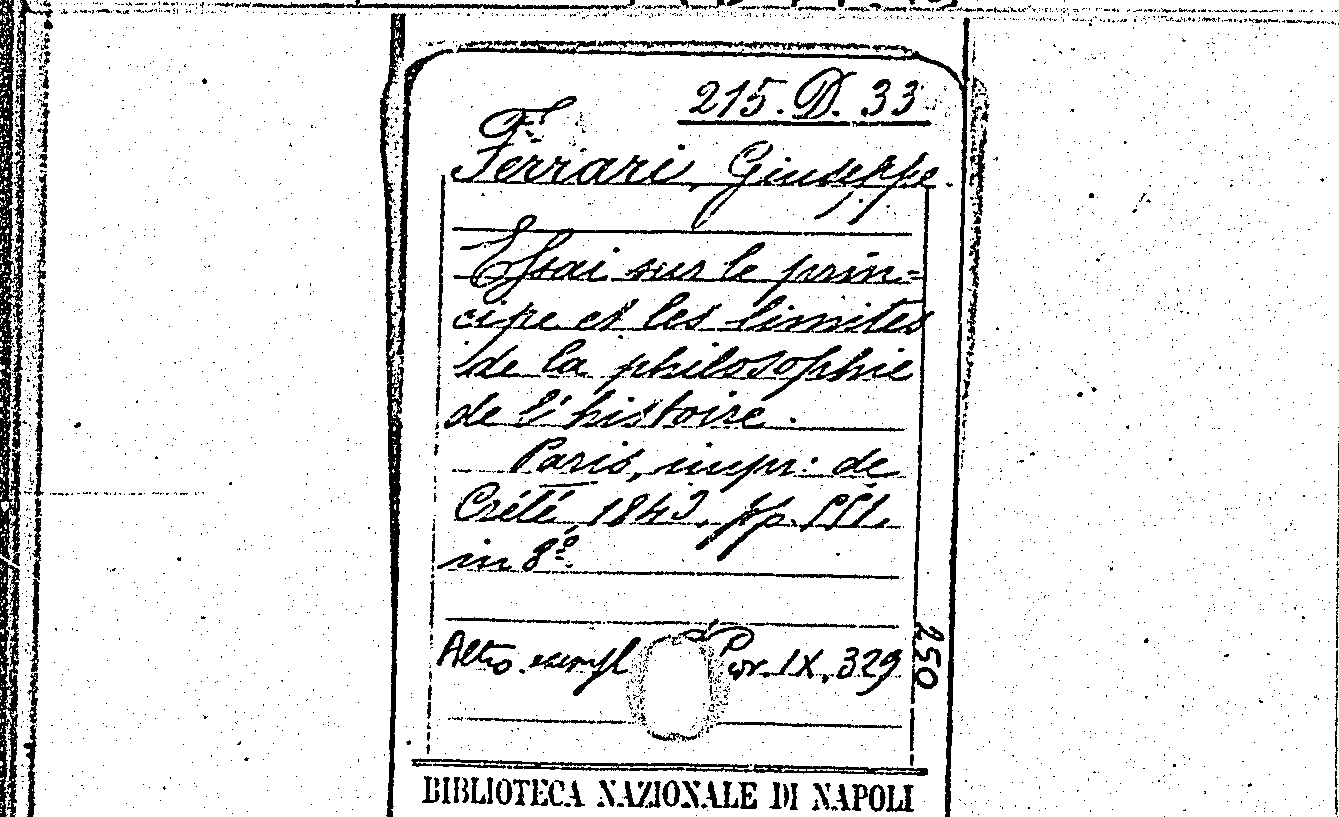 215. D. 33
Ferrari, Giuseppe.
Essai sur le prin=
cipe et les limites
de la philosophie
de l'histoire.
Paris, impr. de
Crété, 1843, pp.
in 8º.
Altro esempl IX, 329
250
BIBLIOTECA NAZIONALE DI NAPOLI